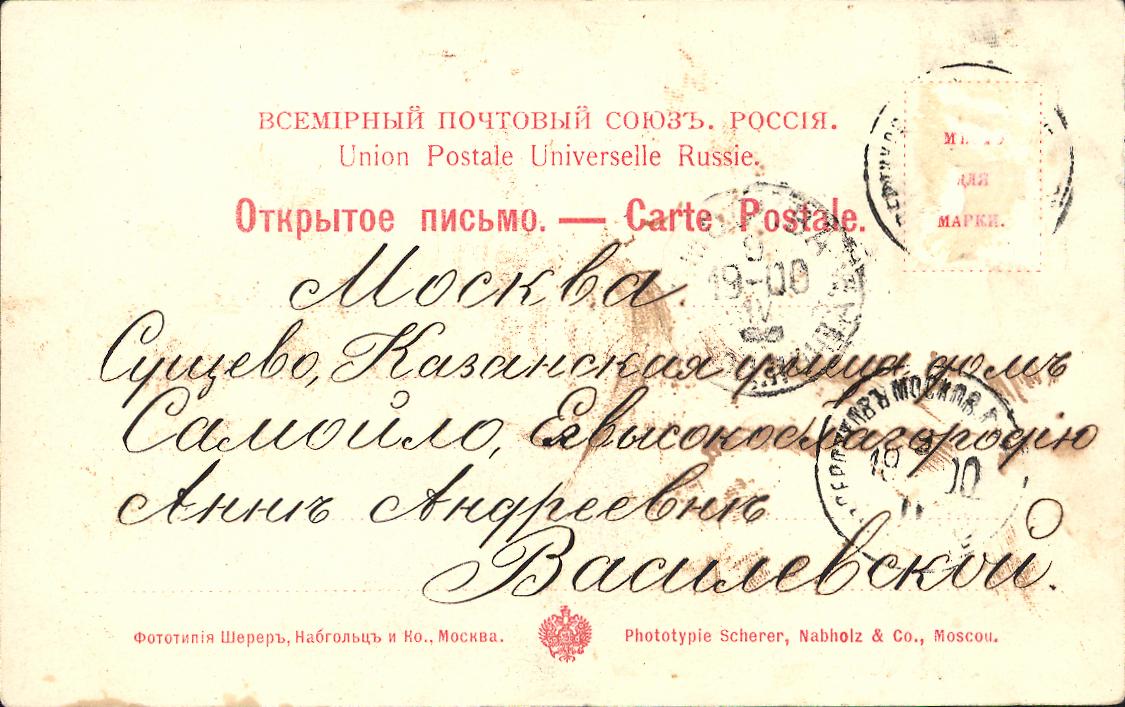 ВСЕМІРНЫЙ ПОЧТОВЫЙ СОЮЗЪ. РОССІЯ.
Union Postale Universelle Russie.
МѢСТО
ДЛЯ
МАРКИ.
Открытое письмо. — Carte Postale.
Москва.
19-00
Сущево, Казанская улица домъ
Самойло, Ея высокоблагородію
Аннѣ Андреевнѣ
Василевской.
Фототипія Шереръ, Набгольцъ и Ко., Москва.
Phototypie Scherer, Nabholz & Co., Moscou.